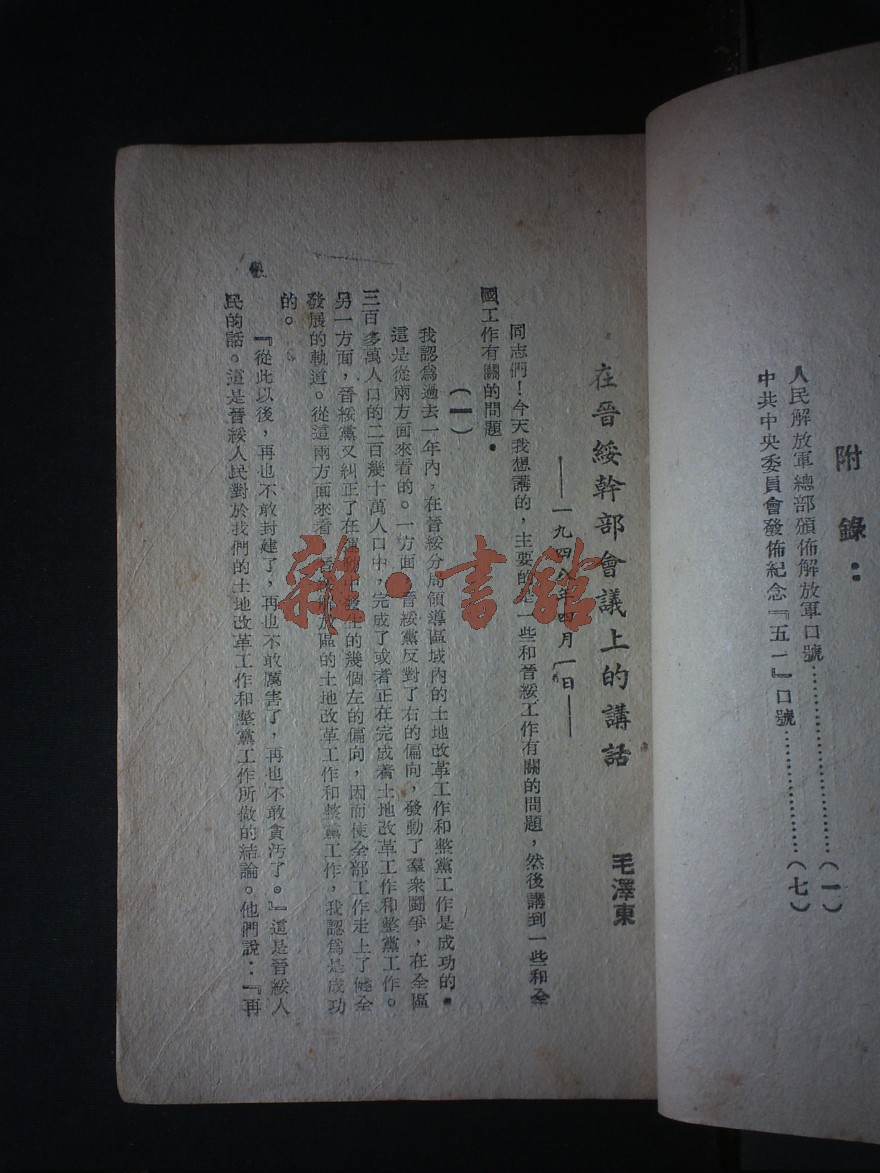 附錄：
人民解放軍總部頒佈解放軍口號……………（一）
中共中央委員會發佈紀念『五一』口號……………（七）
在晉綏幹部會議上的講話
毛澤東
——一九四八年四月一日——
同志們！今天我想講的，主要的是一些和晉綏工作有關的問題，然後講到一些和全
國工作有關的問題。
（一）
我認爲過去一年內，在晉綏分局領導區域內的土地改革工作和整黨工作是成功的。
這是從兩方面來看的。一方面，晉綏黨反對了右的偏向，發動了羣衆鬪爭，在全區
三百多萬人口的二百幾十萬人口中，完成了或者正在完成着土地改革工作和整黨工作。
另一方面，晉綏黨又糾正了在運動中發生的幾個左的偏向，因而使全部工作走上了健全
發展的軌道。從這兩方面來看，晉綏解放區的土地改革工作和整黨工作，我認爲是成功
的。
『從此以後，再也不敢封建了，再也不敢厲害了，再也不敢貪汚了。』這是晉綏人
民的話。這是晉綏人民對於我們的土地改革工作和整黨工作所做的結論。他們說：『再
雜·書館